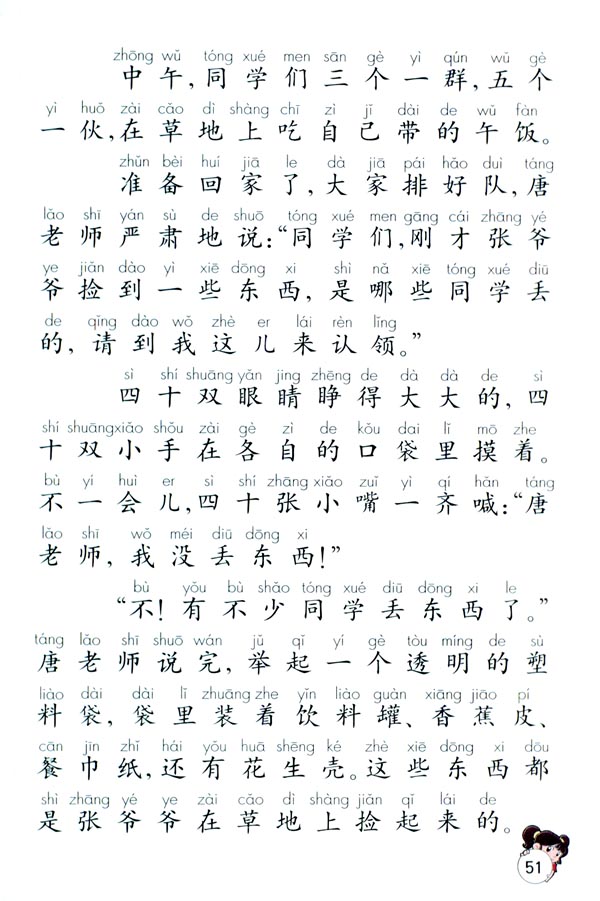 zhōng wǔ tóng xué men sān gè yì qún wǔ gè
中午,同学们三个一群,五个
yì huǒ zài cǎo dì shàng chī zì jǐ dài de wǔ fàn
一伙,在草地上吃自己带的午饭。
zhǔn bèi huí jiā le dà jiā pái hǎo duì táng
准备回家了,大家排好队,唐
lǎo shī yán sù de shuō tóng xué men gāng cái zhāng yé
老师严肃地说:“同学们,刚才张爷
ye jiǎn dào yì xiē dōng xi shì nǎ xiē tóng xué diū
爷捡到一些东西,是哪些同学丢
de qǐng dào wǒ zhè er lái rèn lǐng
的,请到我这儿来认领。”
sì shí shuāng yǎn jing zhēng de dà dà de sì
四十双眼睛睁得大大的,四
shí shuāng xiǎo shǒu zài gè zì de kǒu dai lǐ mō zhe
十双小手在各自的口袋里摸着。
bù yí huì er sì shí zhāng xiǎo zuǐ yì qí hǎn táng
不一会儿,四十张小嘴一齐喊:“唐
lǎo shī wǒ méi diū dōng xi
老师,我没丢东西!”
bù yǒu bù shǎo tóng xué diū dōng xi le
“不!有不少同学丢东西了。”
táng lǎo shī shuō wán jǔ qǐ yí gè tòu míng de sù
唐老师说完,举起一个透明的塑
liào dài dài lǐ zhuāng zhe yǐn liào guàn xiāng jiāo pí
料袋,袋里装着饮料罐、香蕉皮、
cān jīn zhǐ hái yǒu huā shēng ké zhè xiē dōng xi dōu
餐巾纸,还有花生壳。这些东西都
shì zhāng yé ye zài cǎo dì shàng jiǎn qǐ lái de
是张爷爷在草地上捡起来的。
51